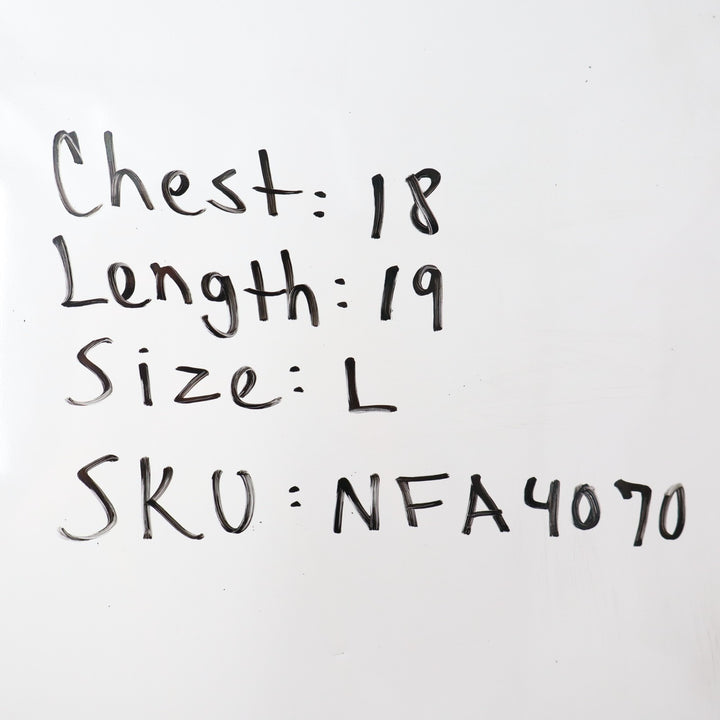 Chest: 18
Length: 19
Size: L
SKU: NFA4070